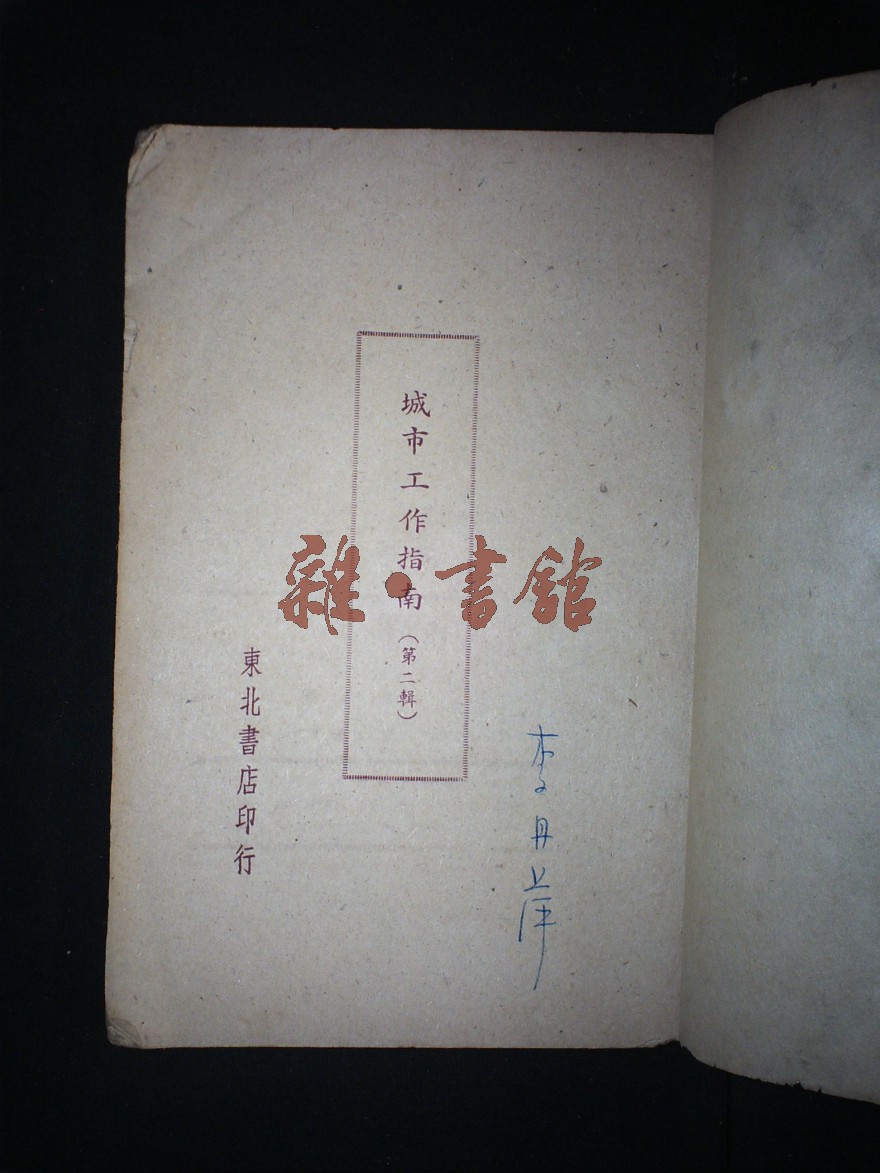 城市工作指南（第二輯）
東北書店印行
雜·書館
李丹